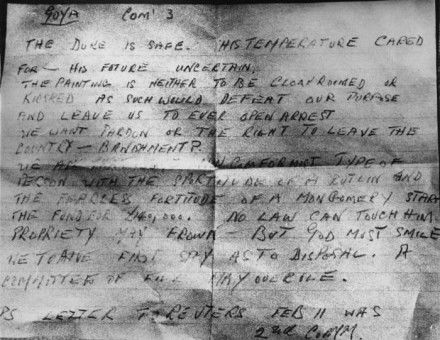 GOYA COM' 3
THE DUKE IS SAFE. HIS TEMPERATURE CARED
FOR - HIS FUTURE UNCERTAIN.
THE PAINTING IS NEITHER TO BE CLOAKROOMED OR
KIOSKED AS SUCH WOULD DEFEAT OUR PURPOSE
AND LEAVE US TO EVER OPEN ARREST.
WE WANT PARDON OR THE RIGHT TO LEAVE THE
COUNTRY - BANISHMENT?
WE TYPE OF
WITH THE OF A BUTLIN AND
THE FEARLESS FORTITUDE OF A MONTGOMERY START
THE FUND FOR £140,000. NO LAW CAN TOUCH HIM.
PROPRIETY MAY FROWN - BUT GOD MUST SMILE
WE TO HAVE FIRST SAY AS TO DISPOSAL. A
COMMITTEE OF MAY OVERRULE.
PS LETTER TO REUTERS FEB 11 WAS
2ND COM'M.